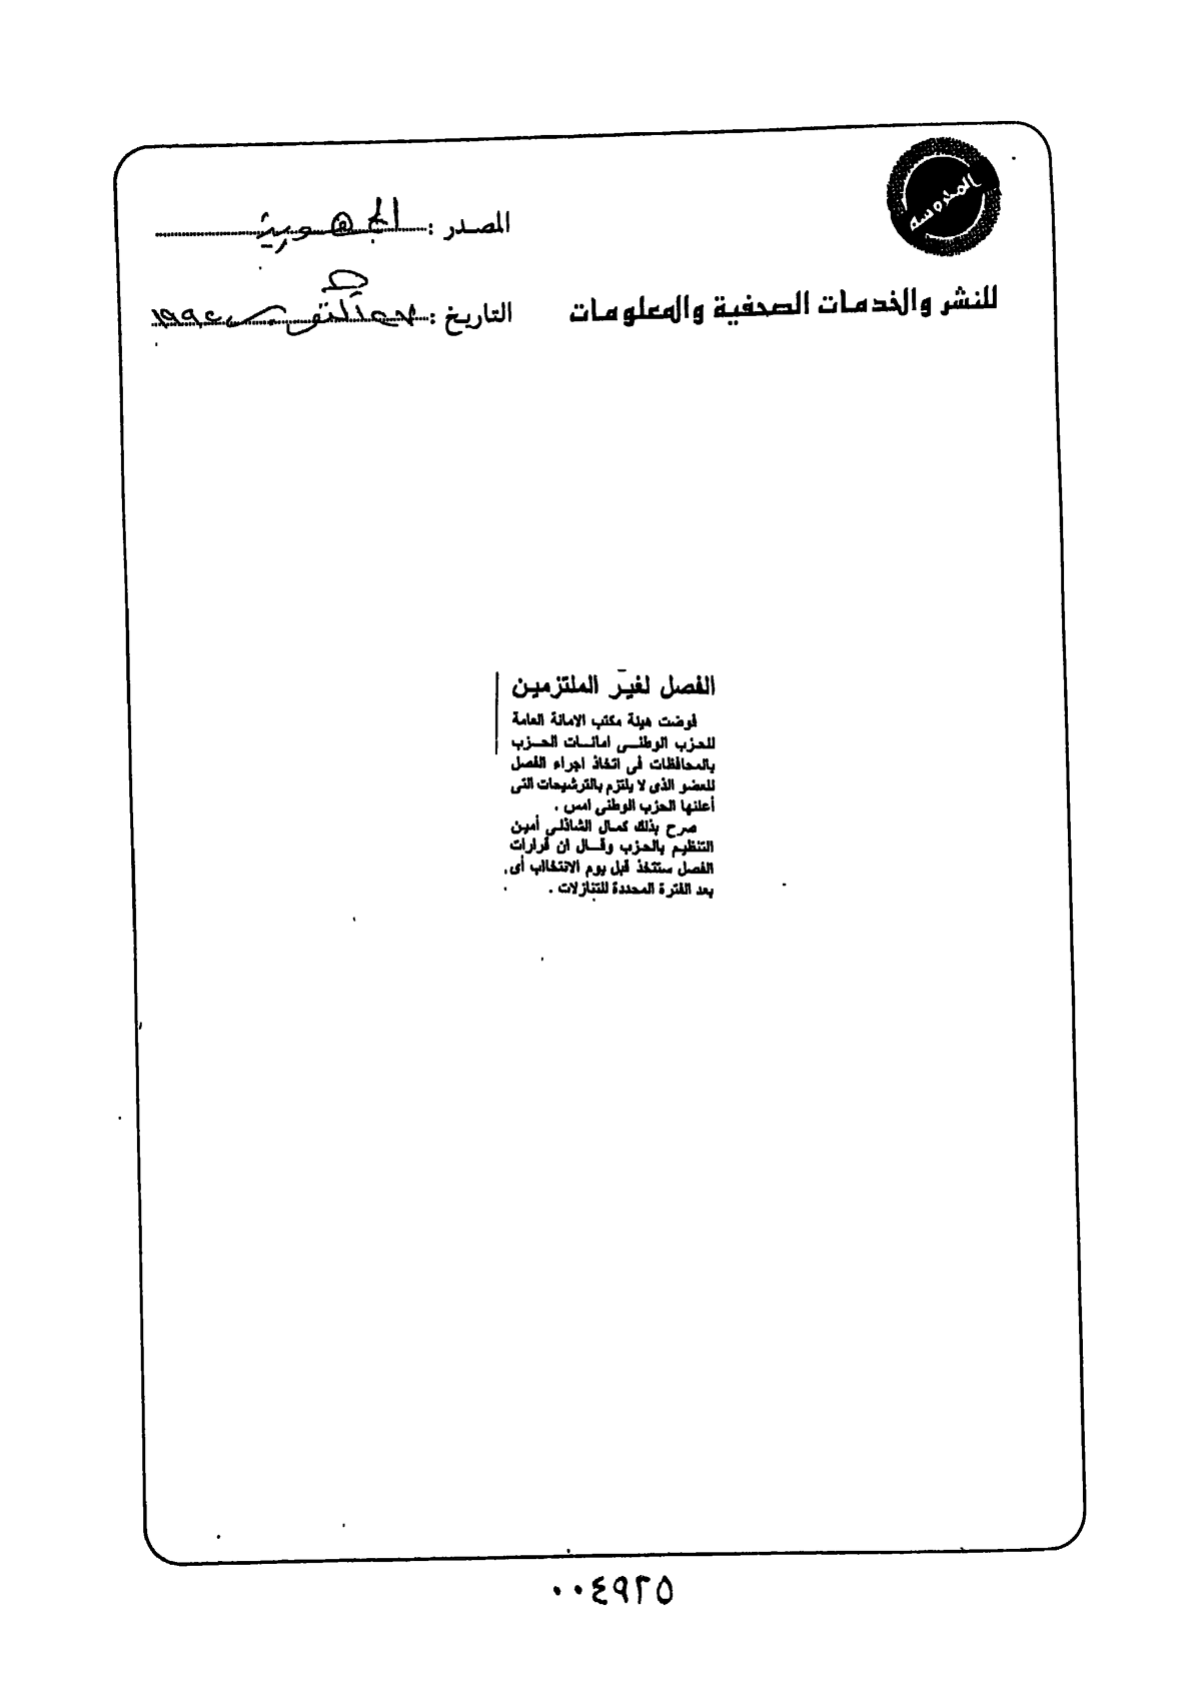 المحروسة
المصدر : الجمهورية
للنشر والخدمات الصحفية والمعلومات
التاريخ : أكتوبر ١٩٩٤
الفصل لغير الملتزمين
فوضت هيئة مكتب الامانة العامة
للحزب الوطنى امانات الحزب
بالمحافظات فى اتخاذ اجراء الفصل
للعضو الذى لا يلتزم بالترشيحات التى
أعلنها الحزب الوطنى امس .
صرح بذلك كمال الشاذلى أمين
التنظيم بالحزب وقال ان قرارات
الفصل ستتخذ قبل يوم الانتخاب أى
بعد الفترة المحددة للتنازلات .
٠٠٤٩٢٥